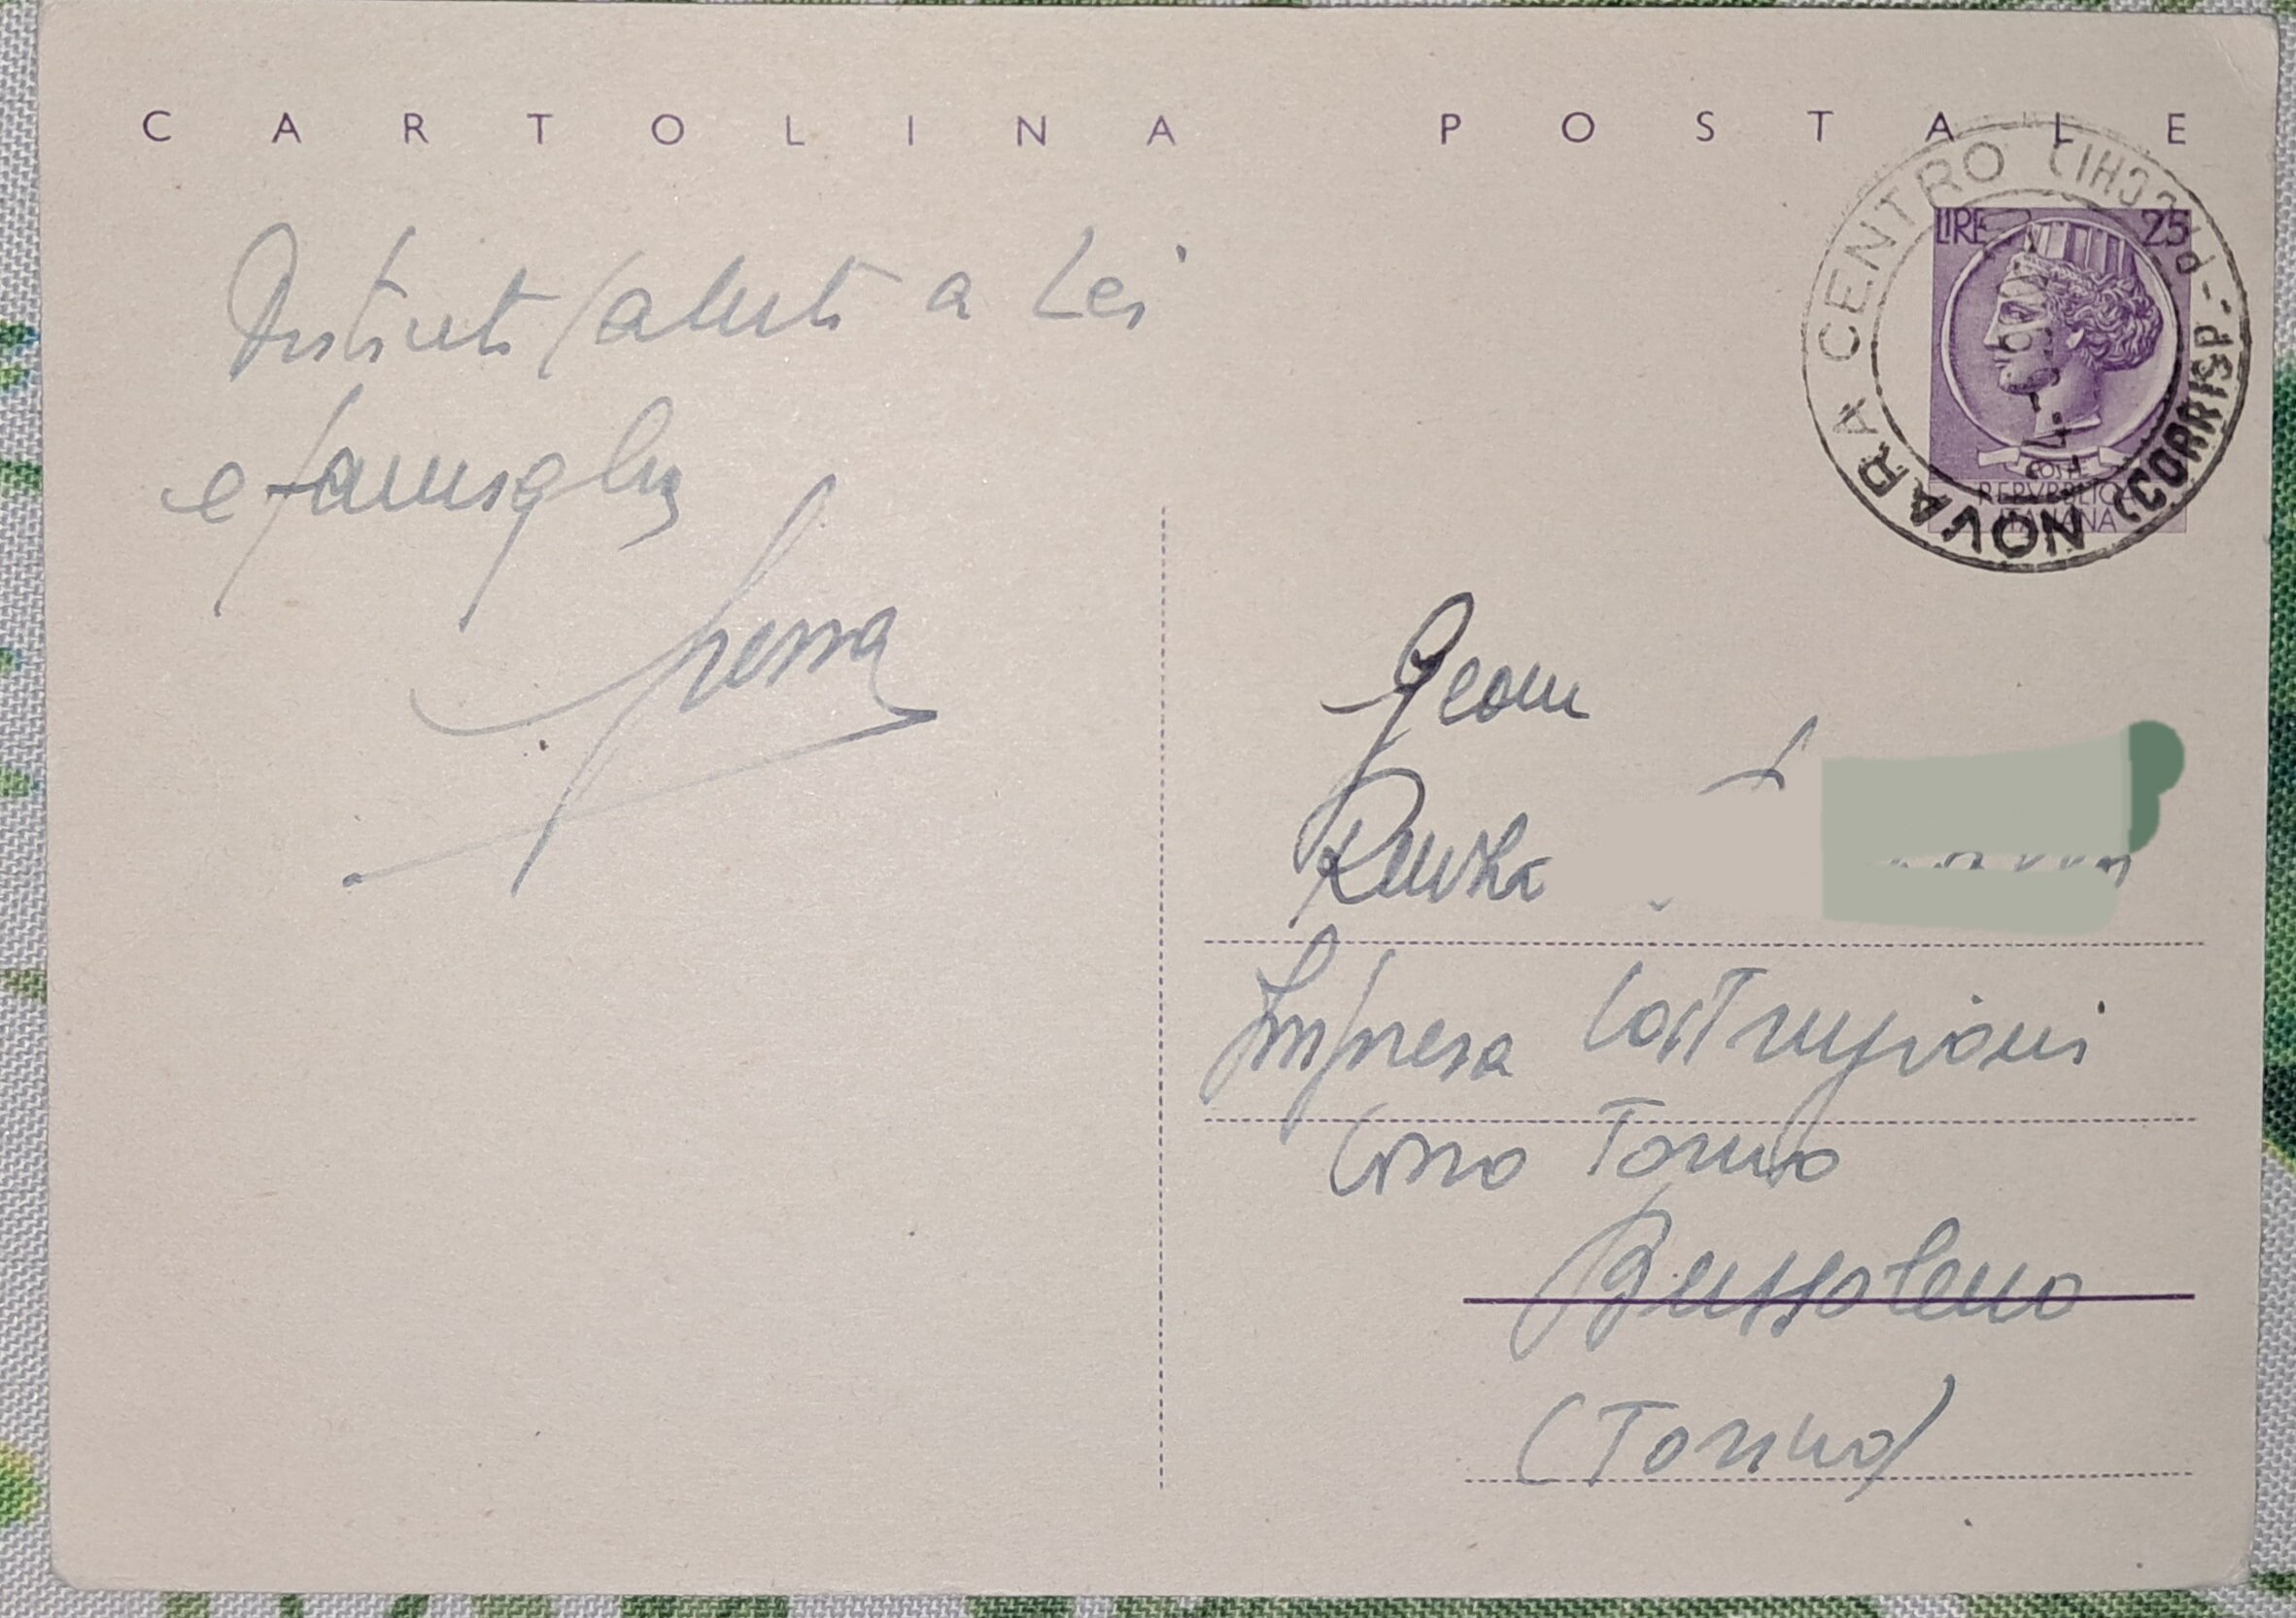 CARTOLINA POSTALE
NOVARA CENTRO
(CORRISP.-PACCHI)
LIRE 25
POSTE
REPVBBLICA
ITALIANA
Distinti saluti a Lei
e famiglia
Geom
Impresa Costruzioni
Corso Torino
Bussoleno
(Torino)